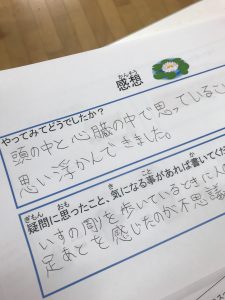 かんそう
感想
やってみてどうでしたか？
頭の中と心臓の中で思っているこ
思い浮かんできました。
ぎもん おも き こと か
疑問に思ったこと、気になる事があれば書いてくだ
いすの周りを歩いているときに人の
足あとを感じたのが不思議